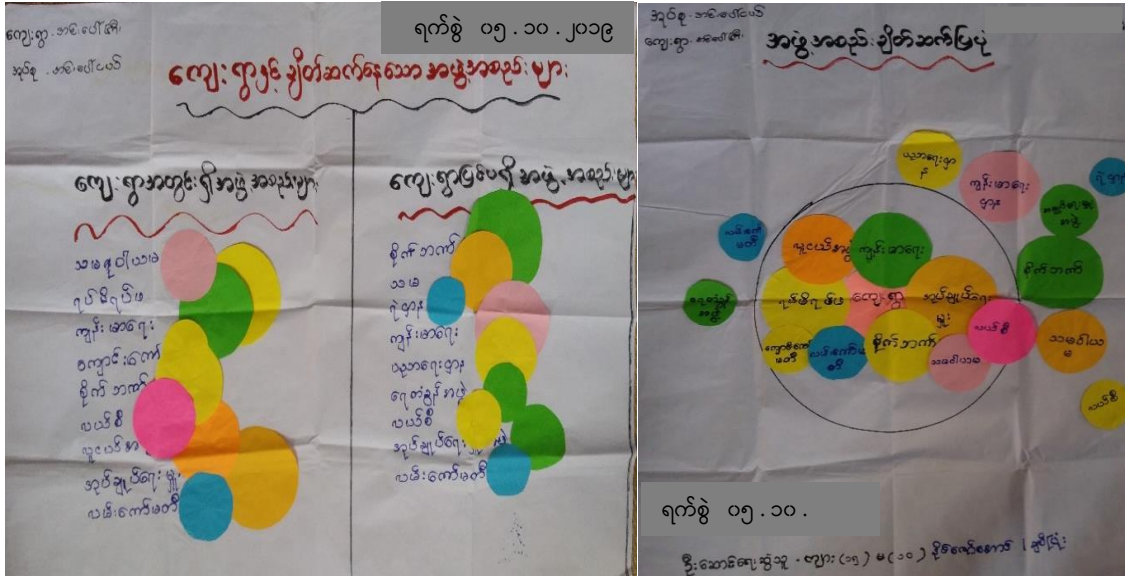 ရက်စွဲ ၀၅.၁၀.၂၀၁၉
ကျေးရွာ
အုပ်စု
ကျေးရွာနှင့် ချိတ်ဆက်နေသော အဖွဲ့အစည်းများ
ကျေးရွာအတွင်းရှိအဖွဲ့အစည်းများ
သမဝါယမ
ရပ်မိရပ်ဖ
ကျန်းမာရေး
ကျောင်းကော်
စိုက်ဘဏ်
လယ်စီ
လူငယ်အ
အုပ်ချုပ်ရေးမှူး
လမ်းကော်မတီ
ကျေးရွာပြင်ပရှိအဖွဲ့အစည်းများ
စိုက်ဘဏ်
သမ
ရဲဌာန
ကျန်းမာရေး
ပညာရေးဌာန
အဖွဲ့
လယ်စီ
အုပ်ချုပ်ရေး
လမ်းကော်မတီ
အုပ်စု
ကျေးရွာ
အဖွဲ့အစည်းချိတ်ဆက်ပြပုံ
ပညာရေးဌာန
ကျန်းမာရေးဌာန
ရဲဌာန
အဖွဲ့
လမ်းကော်မတီ
လူငယ်အဖွဲ့
ကျန်းမာရေး
စိုက်ဘဏ်
အဖွဲ့
ရပ်မိရပ်ဖ
ကျေးရွာ
အုပ်ချုပ်ရေးမှူး
လယ်စီ
သမဝါယမ
လမ်းကော်မတီ
စိုက်ဘဏ်
သမဝါယမ
လယ်စီ
ရက်စွဲ ၀၅.၁၀.
ဦးဆောင်ရေးဆွဲသူ - ကျား(၁၅) မ(၁၀)